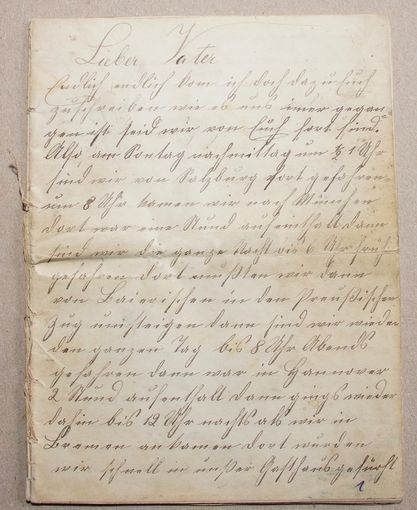 Lieber Vater
Endlich endlich kom ich doch dazu Euch
zuschreiben wie es uns imer gegan-
gen ist seid wir von Euch fort sind.
Also am Sontag nachmittag um ½ 1 Uhr
sind wir von Salzburg fort gefahren
um 8 Uhr kamen wir nach München
dort war eine Stund aufenthalt dann
sind wir die ganze Nacht bis 6 Uhr früh
gefahren dort mußten wir dann
von Baierischen in den Preußischen
Zug umsteigen dann sind wir wieder
den ganzen Tag bis 8 Uhr Abends
gefahren dann war in Hannover
2 Stund aufenthalt dann gings wieder
dahin bis 12 Uhr nachts als wir in
Bremen ankamen dort wurden
wir schnell in unßer Gasthaus geführt
1